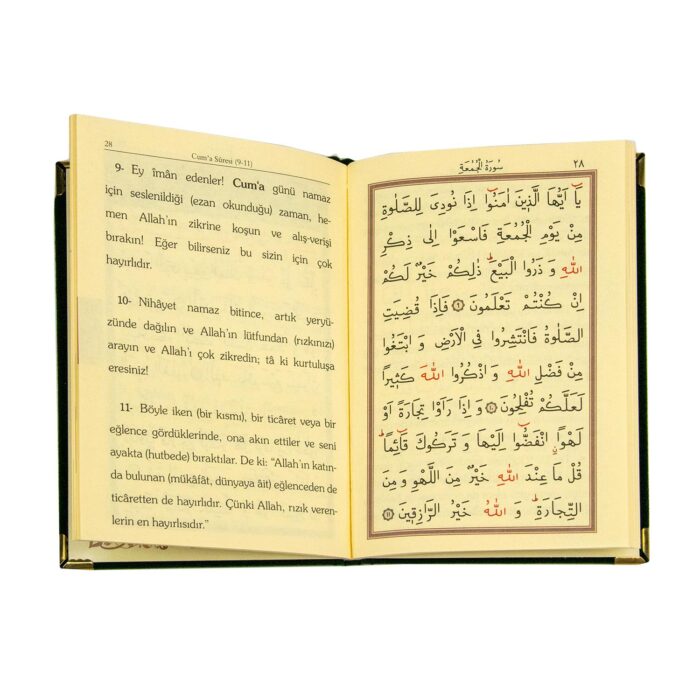 28
Cum'a Sûresi (9-11)
9- Ey îmân edenler! Cum'a günü namaz
için seslenildiği (ezan okunduğu) zaman, he-
men Allah'ın zikrine koşun ve alış-verişi
bırakın! Eğer bilirseniz bu sizin için çok
hayırlıdır.
10- Nihâyet namaz bitince, artık yeryü-
zünde dağılın ve Allah'ın lütfundan (rızkınızı)
arayın ve Allah'ı çok zikredin; tâ ki kurtuluşa
eresiniz!
11- Böyle iken (bir kısmı), bir ticâret veya bir
eğlence gördüklerinde, ona akın ettiler ve seni
ayakta (hutbede) bıraktılar. De ki: “Allah'ın katın-
da bulunan (mükâfât, dünyaya âit) eğlenceden de
ticâretten de hayırlıdır. Çünki Allah, rızık veren-
lerin en hayırlısıdır.”
سُورَةُ الْجُمُعَةِ ٢٨
يَا اَيُّهَا الَّذِينَ اٰمَنُوا اِذَا نُودِىَ لِلصَّلٰوةِ
مِنْ يَوْمِ الْجُمُعَةِ فَاسْعَوْا اِلٰى ذِكْرِ
اللّٰهِ وَ ذَرُوا الْبَيْعَ ذٰلِكُمْ خَيْرٌ لَكُمْ
اِنْ كُنْتُمْ تَعْلَمُونَ ٩ فَاِذَا قُضِيَتِ
الصَّلٰوةُ فَانْتَشِرُوا فِى الْاَرْضِ وَ ابْتَغُوا
مِنْ فَضْلِ اللّٰهِ وَ اذْكُرُوا اللّٰهَ كَثِيرًا
لَعَلَّكُمْ تُفْلِحُونَ ١٠ وَ اِذَا رَاَوْا تِجَارَةً اَوْ
لَهْوًا انْفَضُّوا اِلَيْهَا وَ تَرَكُوكَ قَائِمًا
قُلْ مَا عِنْدَ اللّٰهِ خَيْرٌ مِنَ اللَّهْوِ وَ مِنَ
التِّجَارَةِ وَ اللّٰهُ خَيْرُ الرَّازِقِينَ ١١